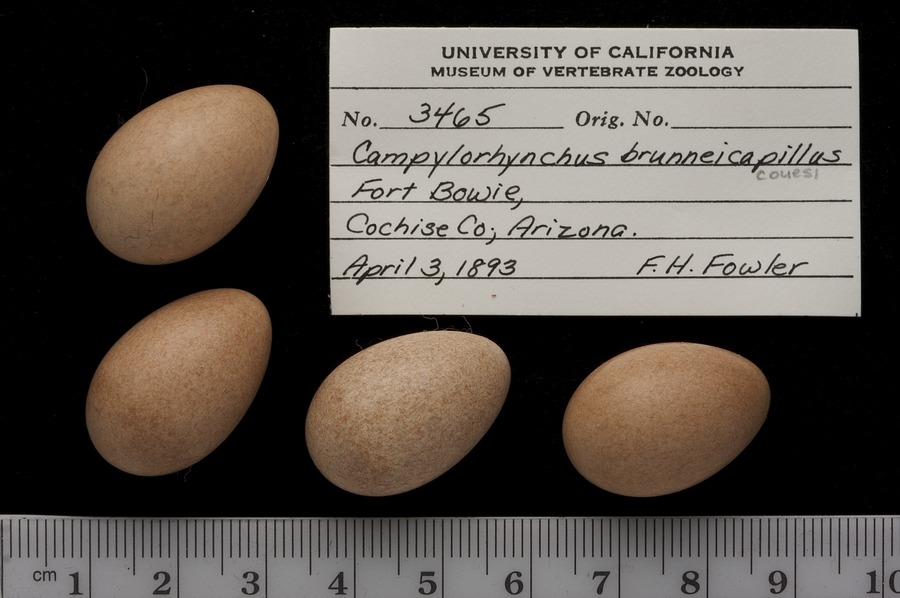 UNIVERSITY OF CALIFORNIA
MUSEUM OF VERTEBRATE ZOOLOGY
No. 3465 Orig. No.
Campylorhynchus brunneicapillus
couesi
Fort Bowie,
Cochise Co; Arizona.
April 3, 1893 F. H. Fowler
cm 1 2 3 4 5 6 7 8 9 10